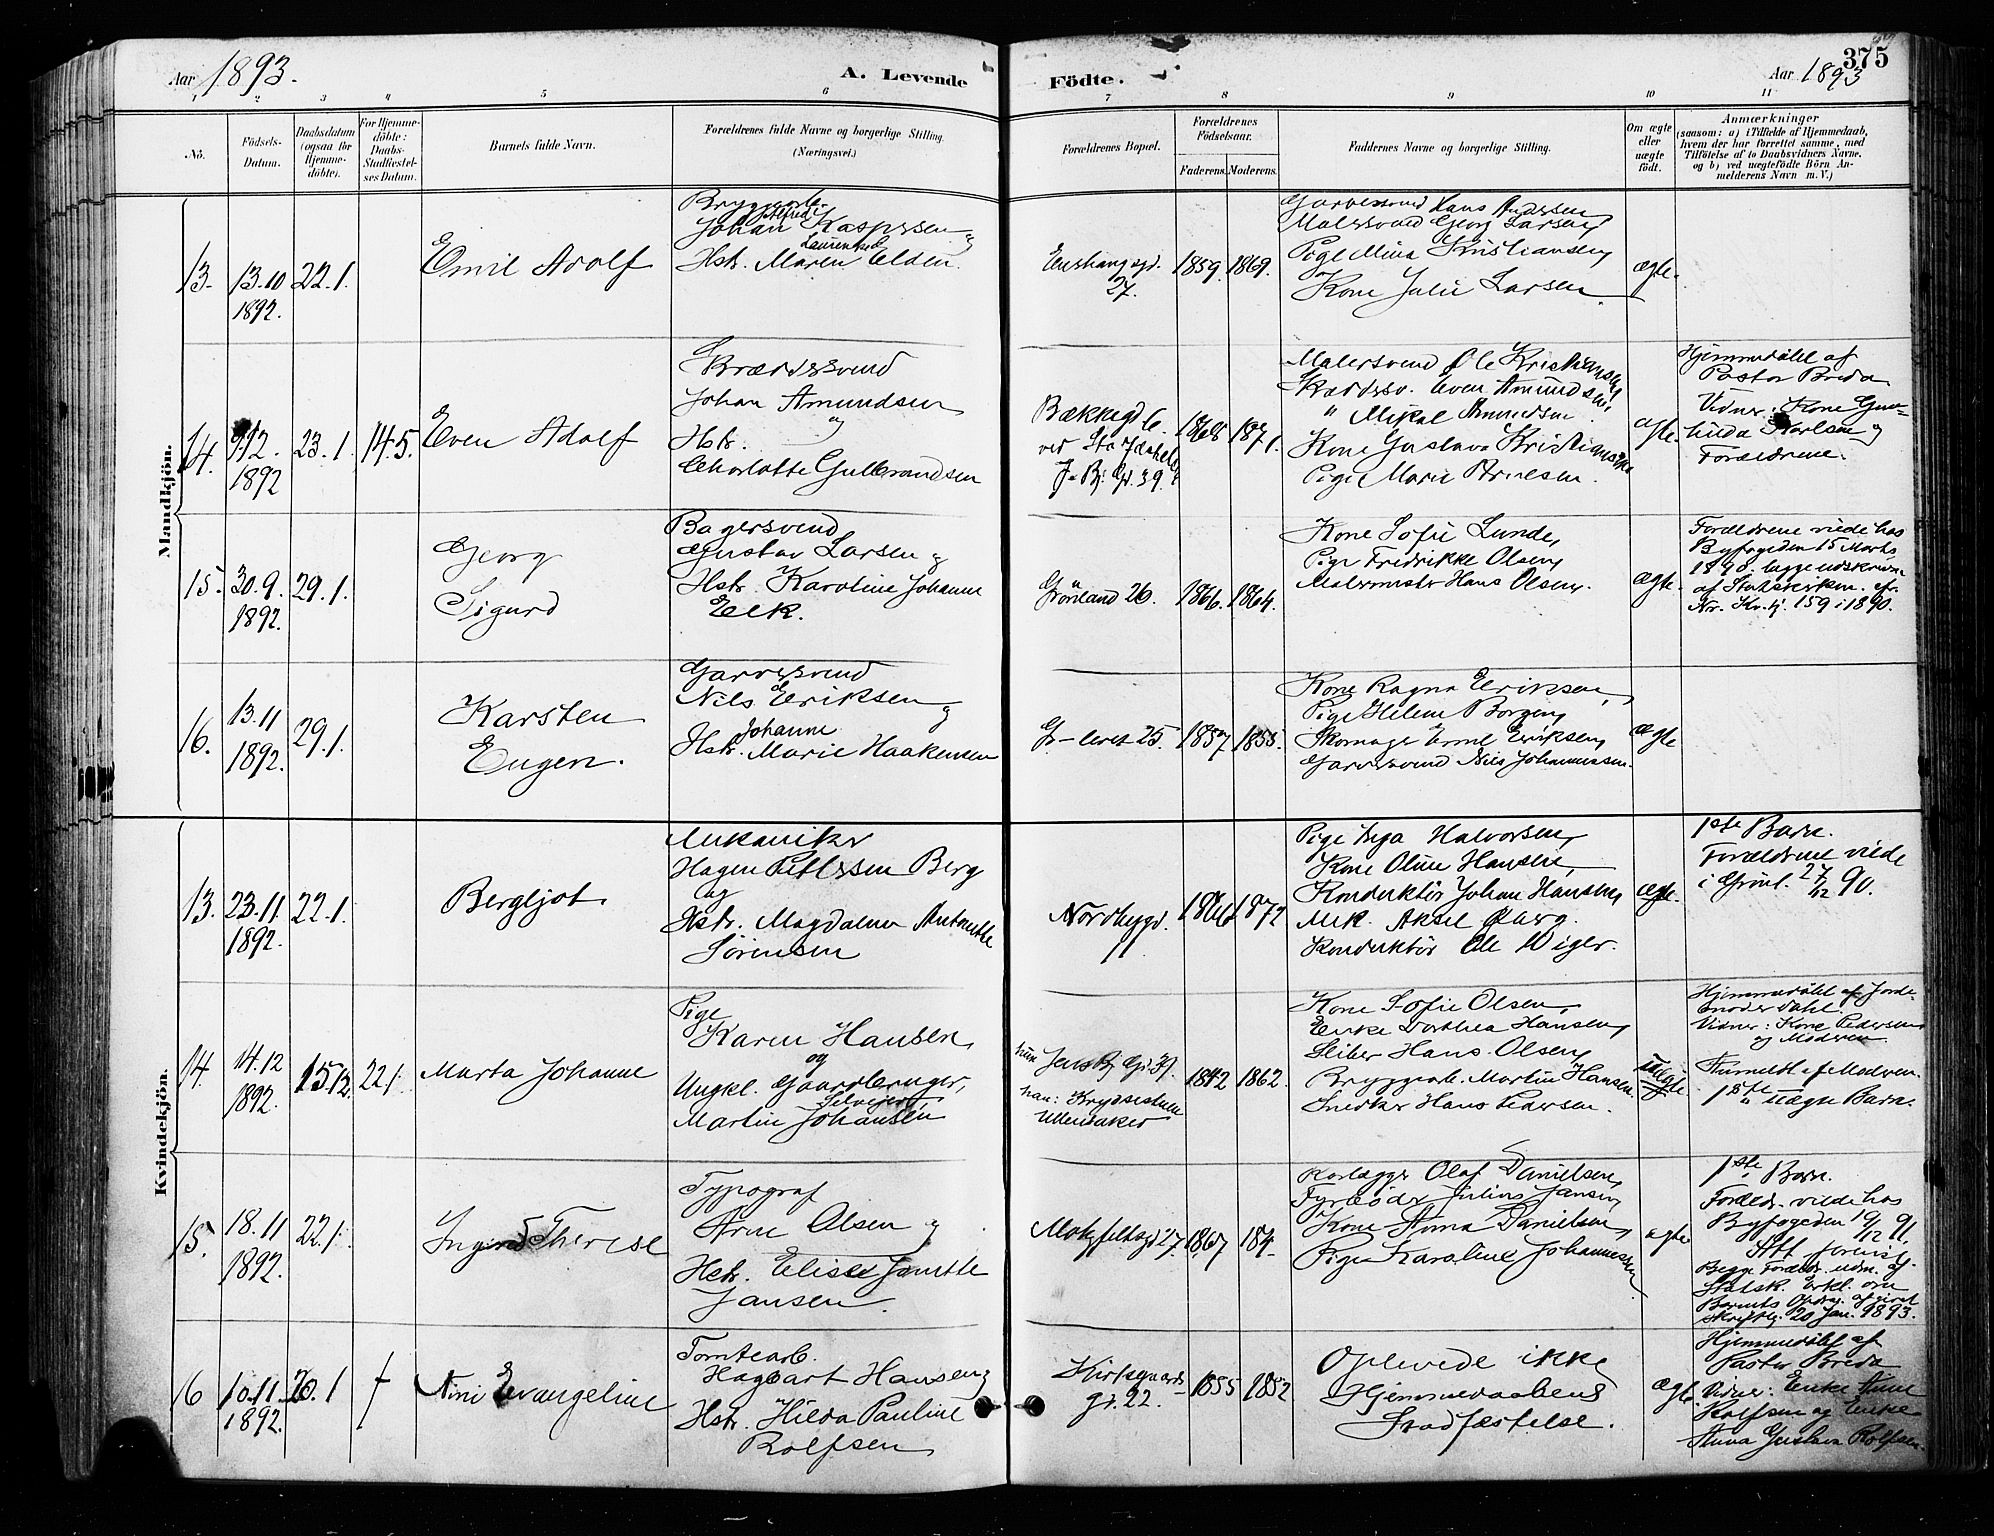 375
Aar 1893.
A. Levende
Födte.
Aar 1893
1 2 3 4 5 6 7 8 9 10 11
Nö.
Födsels-
Datum.
Daabsdatum
(ogsaa for
Hjemme-
döbte).
For Hjemme-
döbte:
Daabs-
Stadfæstel-
ses Datum.
Barnets fulde Navn.
Forældrenes fulde Navne og borgerlige Stilling.
(Næringsvei.)
Forældrenes Bopæl.
Forældrenes
Födselsaar.
Faderens. Moderens.
Faddernes Navne og borgerlige Stilling.
Om ægte
eller
uægte
födt.
Anmærkninger
(saasom: a) i Tilfælde af Hjemmedaab,
hvem der har forrettet samme, med
Tilföielse af to Daabsvidners Navne.
og b) ved uægtefödte Börn An-
melderens Navn m. V.)
Mandkjön.
13. 13.10
1892. 22.1.
Emil Adolf
Alfred
Johan Kaspersen
Hstr. Maren Elden.
27.
1859. 1869.
Garversvend Hans Andersen,
Malersvend Georg Larsen,
Pige Mina Kristiansen,
Kone Julie Larsen.
ægte.
14. 9.12.
1892 23.1. 14.5.
Even Adolf
Skrædersvend
Johan Amundsen
og
Hstr.
Charlotte Gulbrandsen
Bækkegd 6.
1868 1871.
Malersvend Ole Kristiansen,
Skrædsv. Even Amundsen,
" Mikal Amundsen.
Kone Gustava Kristiansen
Pige Marie
ægte.
Hjemmedöbt af
Pastor Breda
Vidner: Kone Gun-
hilda Karlsen og
Forældrene.
15. 30.9.
1892. 29.1.
Georg
Sigurd
Bagersvend
Gustav Larsen og
Hstr. Karoline Johanne
Eek.
Grönland 26.
1866. 1864.
Kone Sofie Lunde,
Pige Fredrikke Olsen,
Malermstr Hans Olsen.
ægte.
Forældrene viede hos
Byfogeden 15 Marts
1890. begge udskrevne
af Statskirken. cfr.
Nr. 159 i 1890.
16. 13.11
1892. 29.1.
Karsten
Eugen.
Garversvend
Nils Eriksen og
Johanne
Hstr. Marie Haakensen
Gr-leret 25.
1857 1855.
Kone Ragna Eriksen,
Pige Helene Borgen,
Skomager Emil Eriksen,
Garversvend Nils Johannessen.
ægte
Kvindekjön.
13. 23.11
1892. 22.1.
Bergljot
Mekaniker
Hagen Pettersen Berg
og
Hstr. Magdalene Antonette
Sörensen
Nordbygd.
1866 1872
Pige Inga Halvorsen,
Kone Oline Hansen,
Konduktör Johan Hansen,
Mek. Aksel Aberg.
Konduktör Ole Wiger.
ægte.
1ste Barn.
Forældrene viede
i Grönl. 27/12 90.
14. 14.12
1892. 15.12. 22.1.
Marta Johanne
Pige
Karen Hansen
og
Ungkl. Gaardbruger,
Selveier
Martin Johansen
hun Jens Bj. Gd. 39.
han:
Ullensaker
1842 1862.
Kone Sofie Olsen,
Enke Dorthea Hansen,
Sliber Hans Olsen,
Bryggearb. Martin Hansen.
Snedker Hans Pedersen.
Uægte
Hjemmedöbt af Jorde-
moder Dahl.
Vidner: Kone Pedersen
og Moderen.
Anmeldt af Moderen.
1ste uægte Barn.
15. 18.11
1892. 22.1.
Ingrid Therese
Typograf
Arne Olsen og
Hstr. Elise Janette
Jansen.
Motzfeldtsgd 27.
1867 187-
Rörlægger Olaf Danielsen,
Fyrböder Julius Jansen,
Kone Anna Danielsen,
Pige Karoline Johannesen
ægte
1ste Barn.
Forældr. viede hos
Byfogeden 19/12 91.
Att. forevist.
Begge Forældr. udm. af
Statsk. Erkl. om
Barnets Opdrag. afgivet
skriftlig. 20 Jan. 1893.
16 10.11.
1892. 20.1 †
Nini Evangeline
Tomtearb.
Hagbart Hansen og
Hstr. Hilda Pauline
Rolfsen
Kirkegaards-
gd. 22.
1855 1852
Oplevede ikke
Hjemmedaabens
Stadfæstelse.
ægte
Hjemmedöbt af
Pastor Breda
Vidner: Enke Anne
Rolfsen og Enke
Anna Gustava Rolfsen.